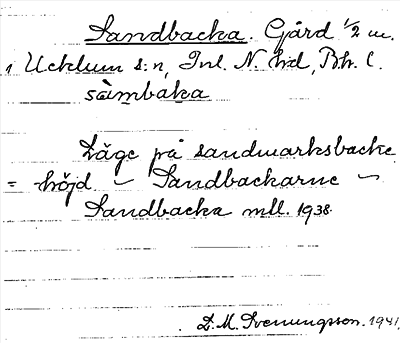 Sandbacka. Gård 1/2 m.
i Ucklum s:n, Inl. N. hd, Bh. l.
sàmbaka
Läge på sandmarksbacke
= höjd. – Sandbackarne –
Sandbacka mtl. 1938.
D. M. Svenungsson. 1941.